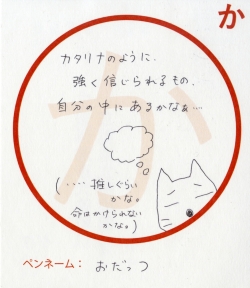 か
カタリナのように、
強く信じられるもの、
自分の中にあるかなぁ…
(‥‥推しぐらい
かな。
命はかけられない
かな。)
ペンネーム：おだっつ